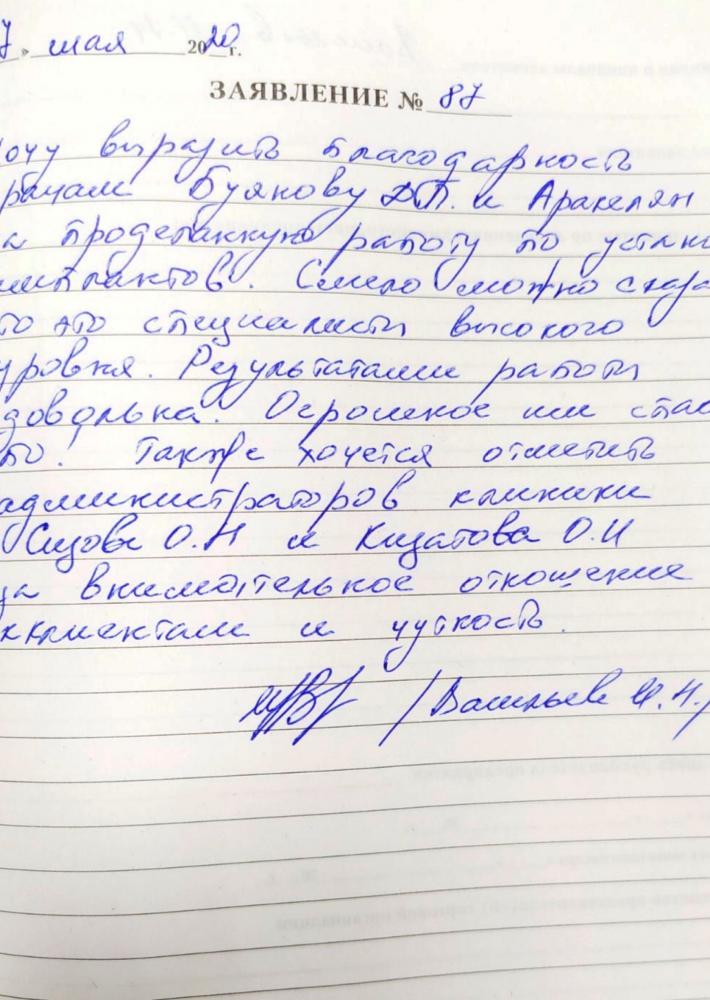 7 » мая 2020 г.
ЗАЯВЛЕНИЕ № 87
очу выразить благодарность
рачам Буянову Д.П. и Аракелян
а проделанную работу по устано
имплантов. Смело можно сказа
то это специалисты высокого
уровня. Результатами работы
довольна. Огромное им спас
бо! Также хочется отметить
администраторов клиники
Сизова О.Н и Кизатова О.И
за внимательное отношение
к клиентам и чуткость.
/Васильева И.Н./